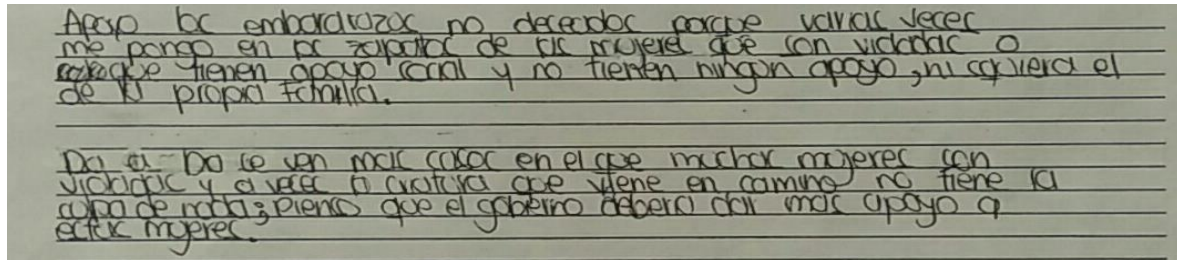 Apoyo los embarazos no deceados porque varias veces
me pongo en los zapatos de las mujeres que son violadas o
que tienen apoyo social y no tienen ningun apoyo, ni siquiera el
de su propia familia.
Dia a Dia se ven mas casos en el que muchas mujeres son
violadas y a veces la criatura que viene en camino no tiene la
culpa de nada; pienso que el gobierno debera dar mas apoyo a
estas mujeres.